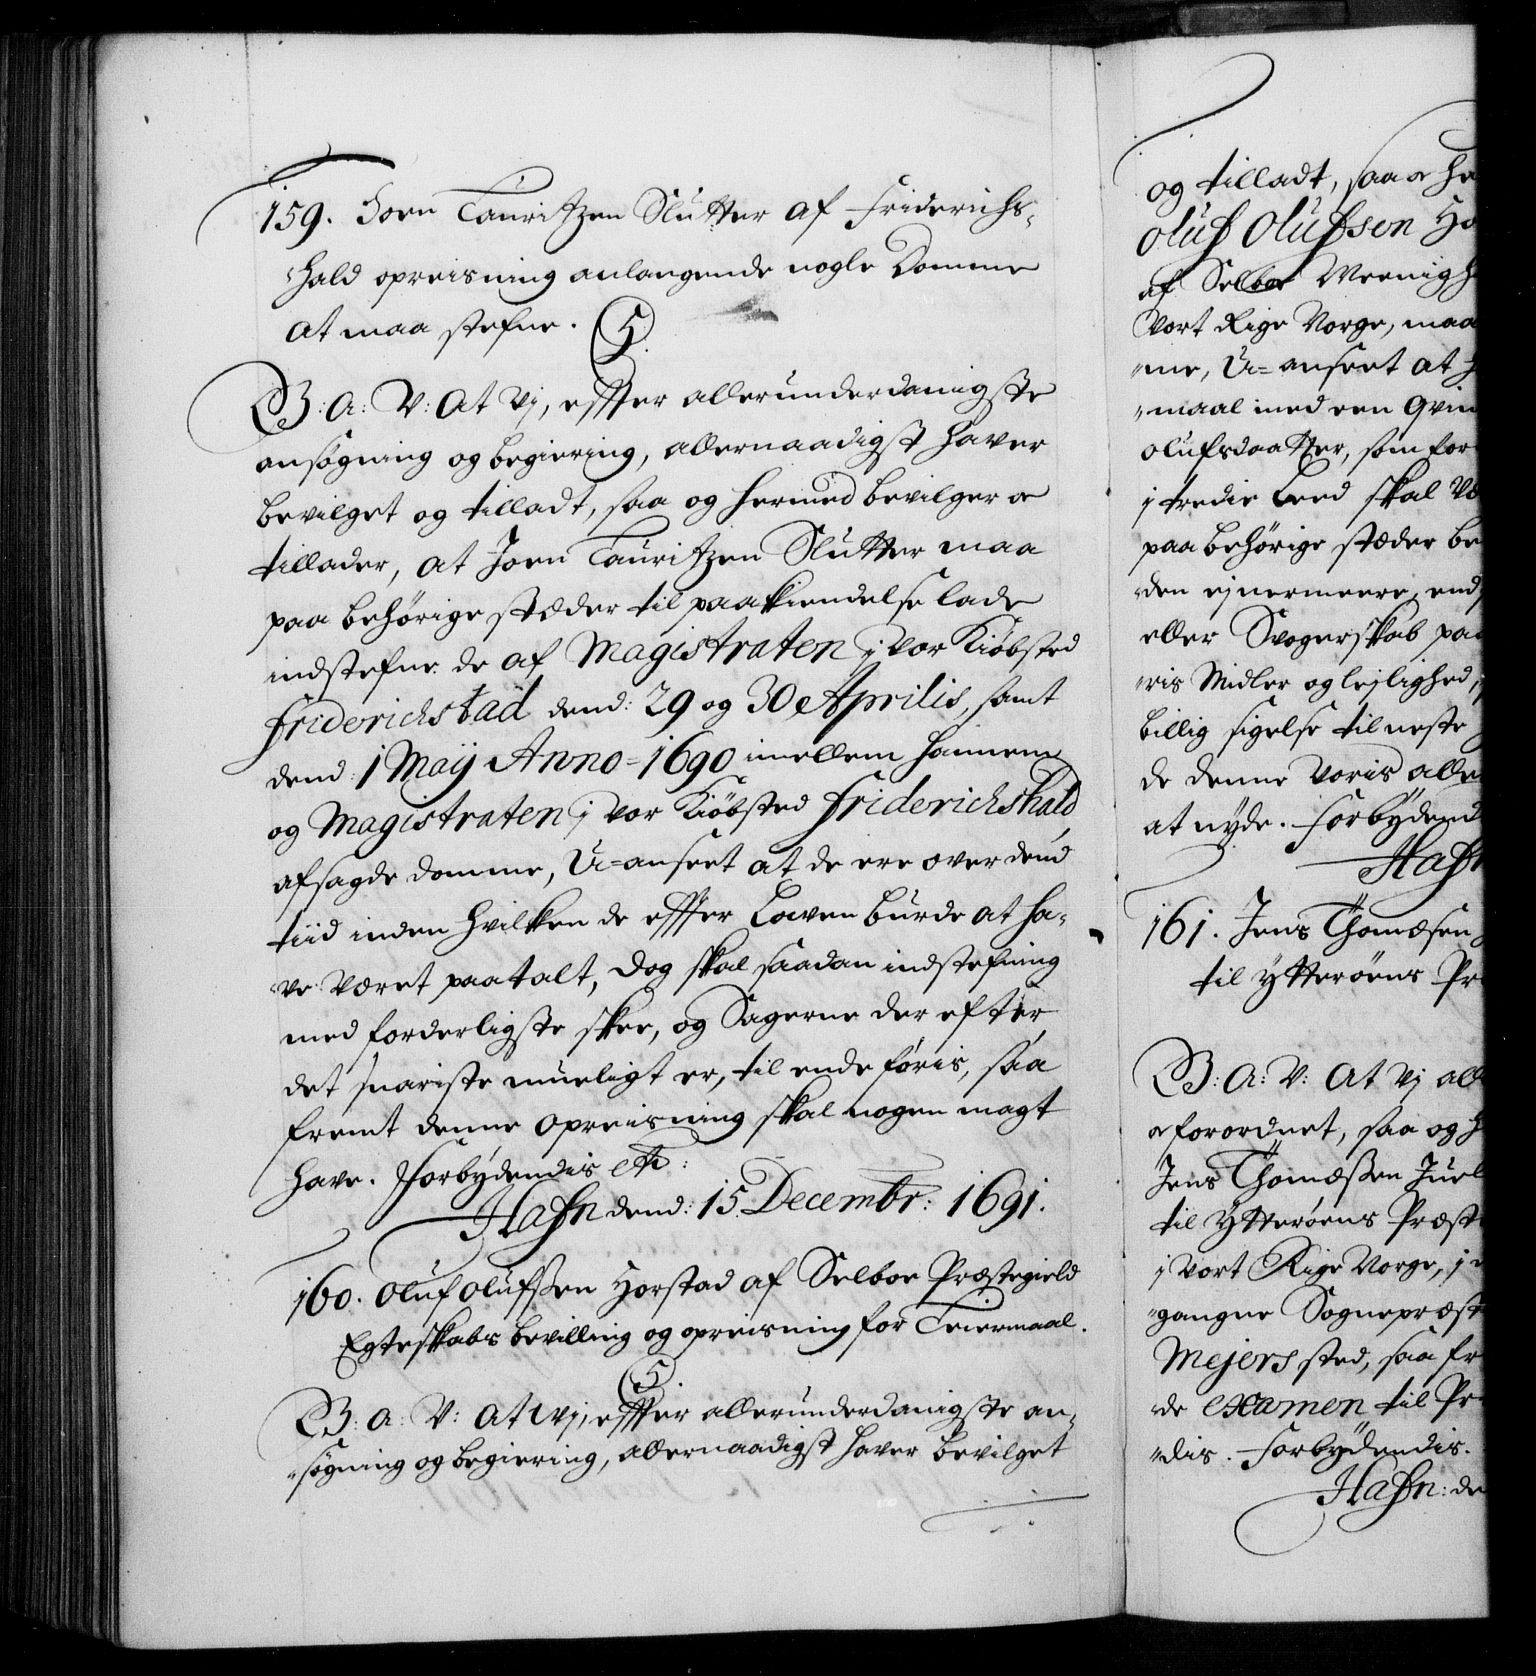 159. Joen Lauritzen Slutter af Friderichs-
hald opreisning anlangende nogle Domme
at maa stefne. (5)
G: A: V: At Vi, effter allerunderdanigste
ansøgning og begiering, allernaadigst haver
bevilget og tilladt, saa og hermed bevilger oc
tillader, at Joen Lauritzen Slutter maa
paa behørige stæder til paakiendelse lade
indstefne de af Magistraten i vor Kiøbsted
Friderichstad dend: 29 og 30 Aprilis, samt
dend: 1 Maij Anno-1690 imellem hannem
og Magistraten i vor Kiøbsted Friderichshald
afsagde domme, U-anseet at de ere over deñd
tiid inden hvilken de effter Loven burde at ha-
ve været paatalt, dog skal saadan indstefning
med forderligste skee, og Sagerne der efter
det snariste mueligt er, til ende føris, saa
fremt denne opreisning skal nogen magt
have. Forbydendis etc:
Hafn dend: 15 Decembr: 1691.
160. Oluf Olufssen Horstad af Selboe Præstegield
Egteskabs bevilling og opreisning for Leiermaal.
(5)
G: A: V: At Vi, effter allerunderdanigste an-
søgning og begiering, allernaadigst haver bevilget
og tilladt, saa oc he
Oluf Olufsøn Ho
af Selboe Meenigh
Vort Rige Norge, maa
me, U-anseet at h
maal med een Qvin
Olufsdaatter, som for
i tredie Leed skal Væ
paa behørige stæder be
den ej nermeere, end
eller Svogerskab paa
ris Midler og lejlighed,
billig sigelse til neste
de denne Voris alle
at nyde. Forbydend
Hafn
161. Jens Thomæsen
til Ytterøens Pr
G: A: V: At Vi all
oc forordnet, saa og h
Jens Thomæssen Juel
til Ytterøens Præst
i Vort Rige Norge, i
gangne Sognepræst
Mejers sted, saa fr
de Examen til Pr
dis. Forbydendis.
Hafn: de